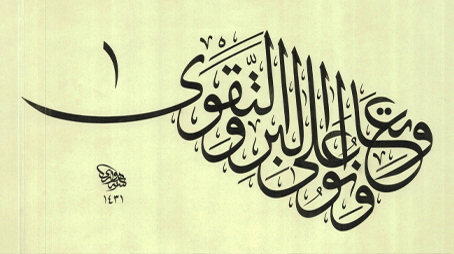 وَتَعَاوَنُوا عَلَى الْبِرِّ وَالتَّقْوَى
١٤٣١